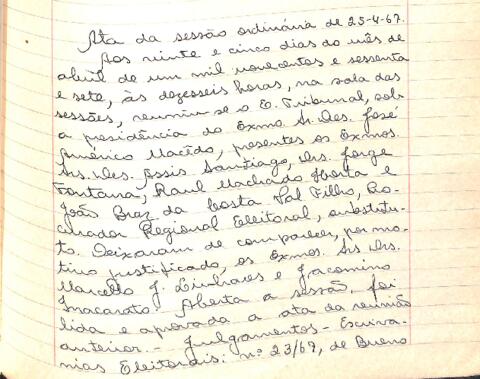 Ata da sessão ordinária de 25-4-67.
Aos vinte e cinco dias do mês de
abril de um mil novecentos e sessenta
e sete, às dezesseis horas, na sala das
sessões, reuniu-se o E. Tribunal, sob
a presidência do Exmo. Sr. Des. José
Américo Macêdo, presentes os Exmos.
Srs. Des. Assis Santiago, Drs. Jorge
Fontana, Raul Machado Horta e
João Braz da Costa Val Filho, Pro-
curador Regional Eleitoral, substitu-
to. Deixaram de comparecer, por mo-
tivo justificado, os Exmos. Srs. Drs.
Marcello J. Linhares e Jacomino
Inacarato. Aberta a sessão, foi
lida e aprovada a ata da reunião
anterior. - Julgamentos - Escriva-
nias Eleitorais: nº 23/67, de Bueno